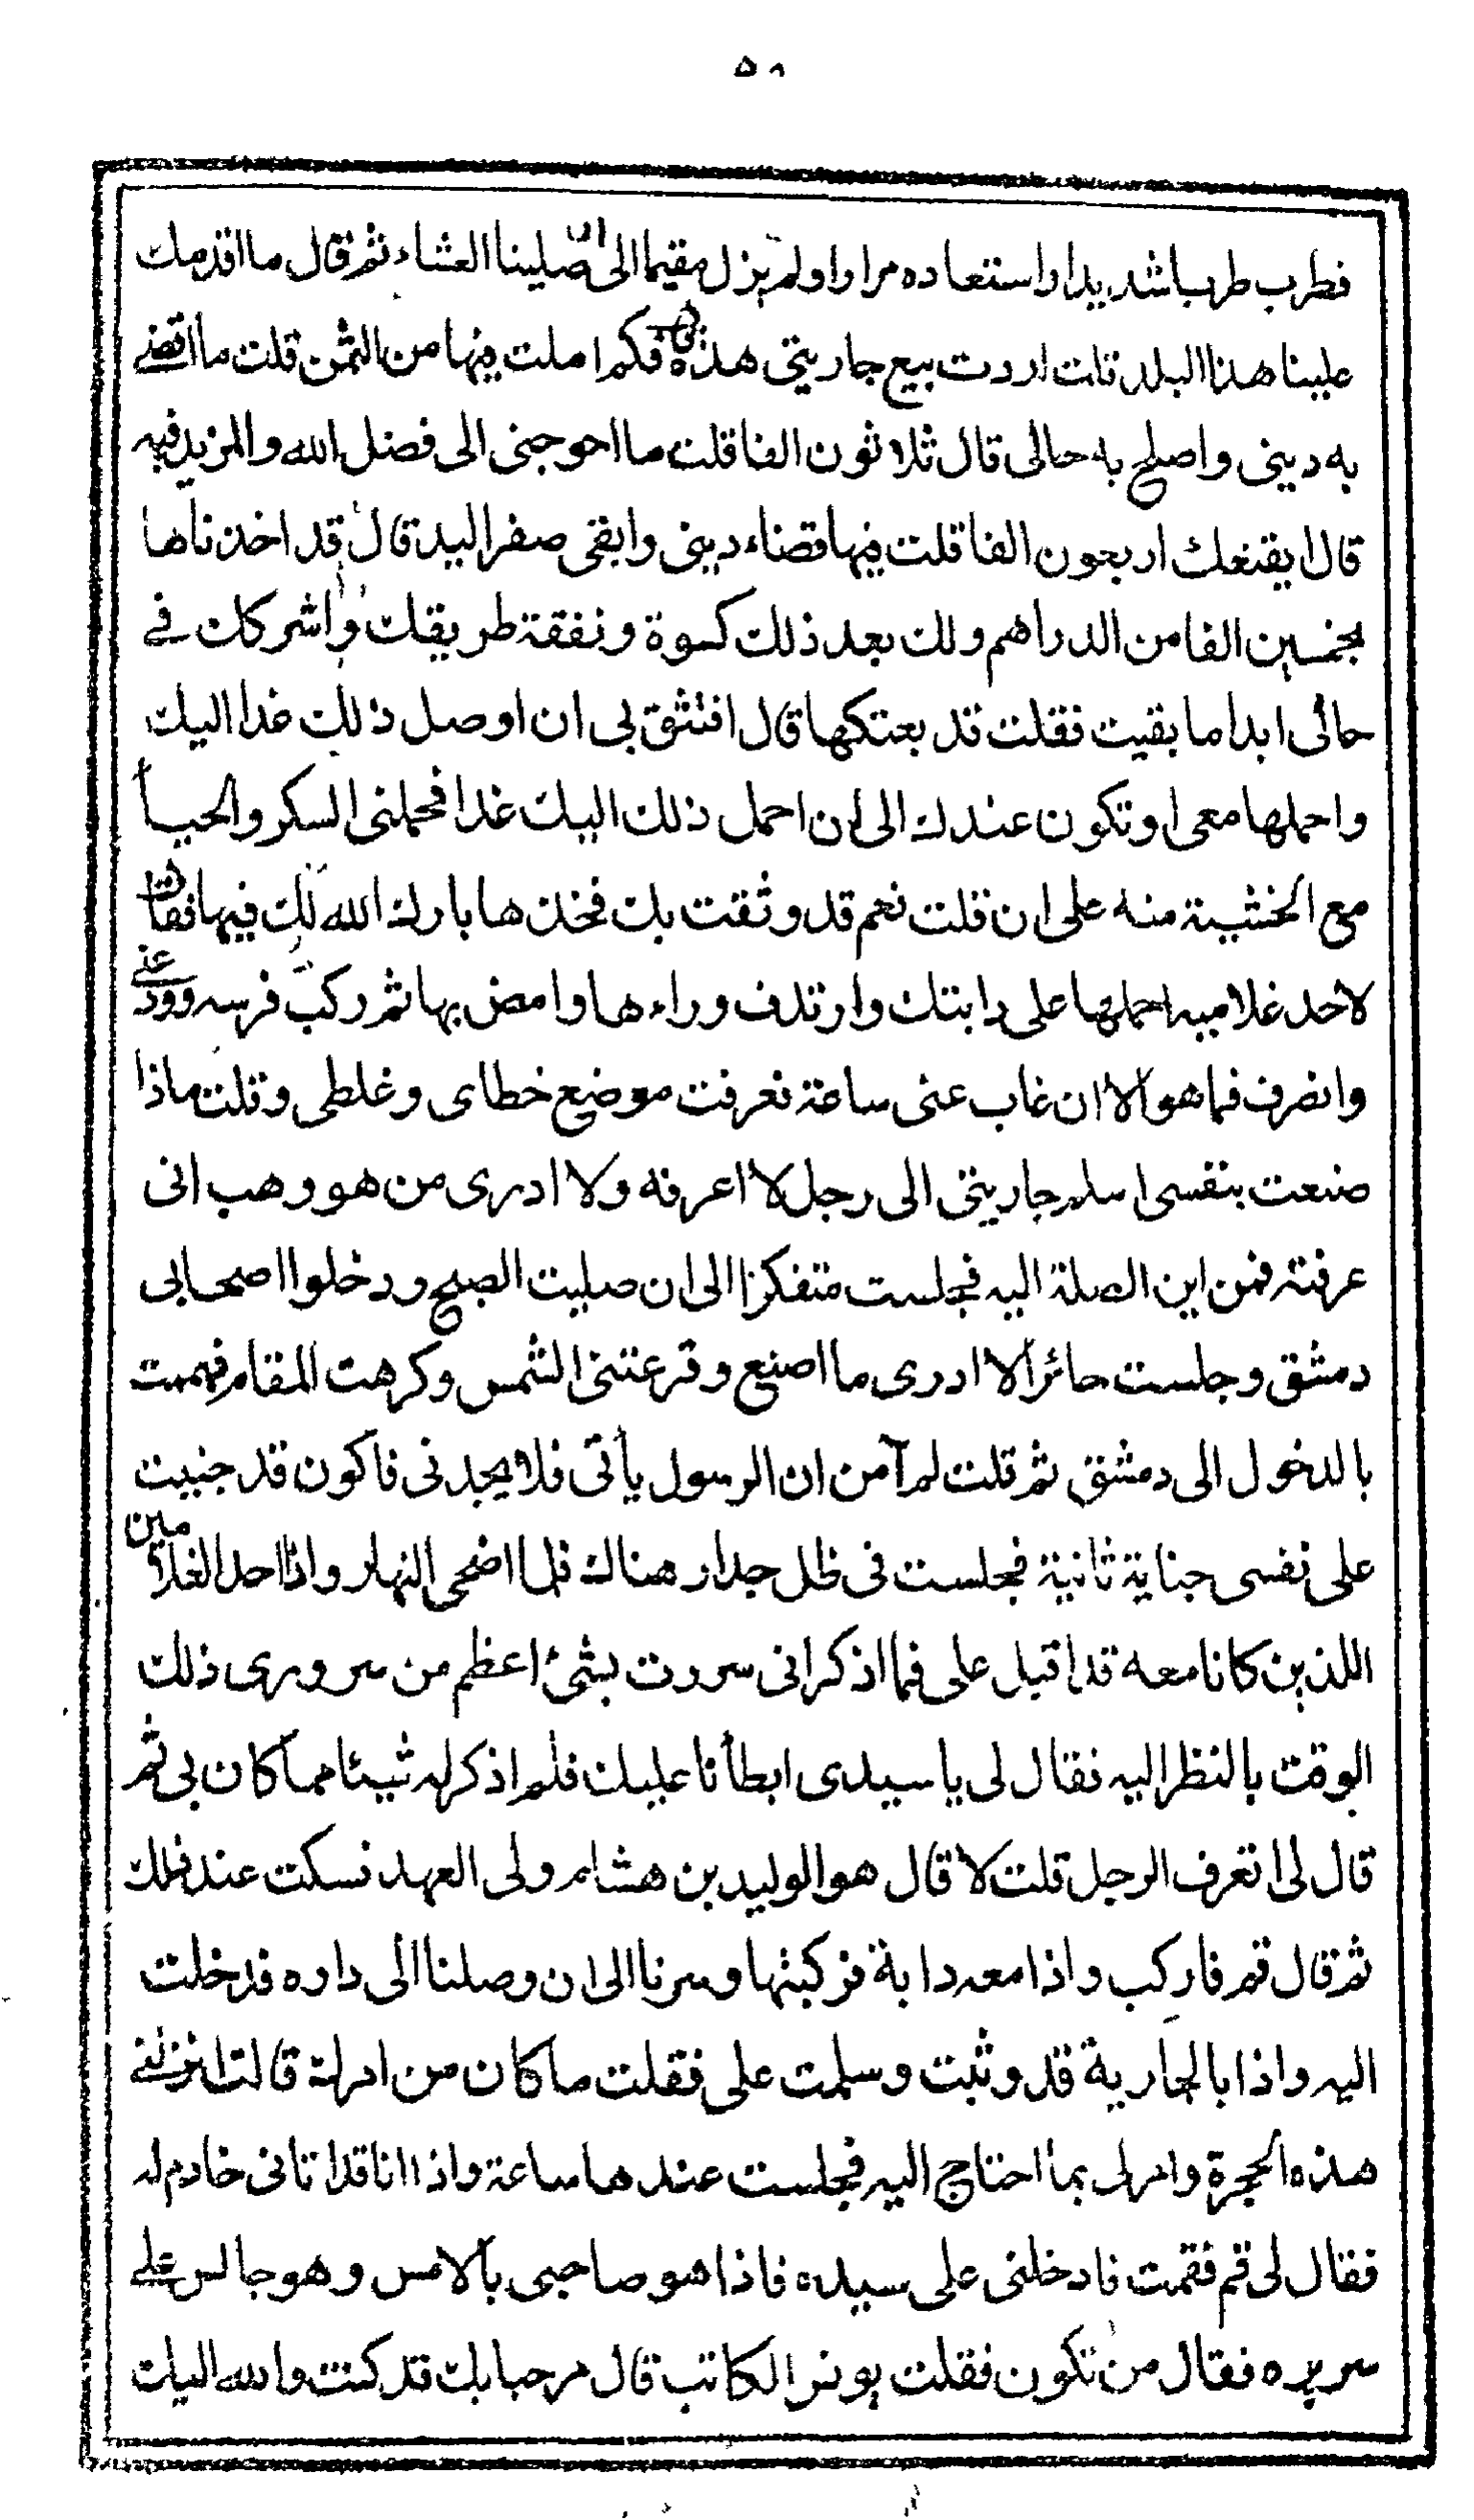 ٥٨
فطرب طربا شديدا واستعاده مرارا ولم يزل مقيما الى ان صلينا العشاء ثم قال ما اقدمك
علينا هذا البلد قلت اردت بيع جاريتى هذه قال فكم املت فيها من الثمن قلت ما اقضى
به دينى واصلح به حالى قال ثلاثون الفا قلت ما احوجنى الى فضل الله والمزيد فيه
قال ايقنعك اربعون الفا قلت فيها قضاء دينى وابقى صفر اليد قال قد اخذناها
بخمسين الفا من الدراهم ولك بعد ذلك كسوة ونفقة طريقك واشركك فى
حالى ابدا ما بقيت فقلت قد بعتكها قال افتثق بى ان اوصل ذلك غدا اليك
واحملها معى او تكون عندك الى ان احمل ذلك اليك غدا فحملنى السكر والحيأ
مع الخشية منه على ان قلت نعم قد وثقت بك فخذها بارك الله لك فيها فقال
لاحد غلاميه احملها على دابتك وارتدف وراءها وامض بها ثم ركب فرسه وودعنى
وانصرف فما هو الا ان غاب عنى ساعة فعرفت موضع خطاى وغلطى وقلت ماذا
صنعت بنفسى اسلم جاريتى الى رجل لا اعرفه ولا ادرى من هو وهب انى
عرفته فمن اين الصلة اليه فجلست متفكرا الى ان صليت الصبح ودخلوا اصحابى
دمشق وجلست حائرا لا ادرى ما اصنع وقرعتنى الشمس وكرهت المقام فهممت
بالدخول الى دمشق ثم قلت لم آمن ان الرسول يأتى فلا يجدنى فاكون قد جنيت
على نفسى جناية ثانية فجلست فى ظل جدار هناك فلما اضحى النهار واذا احد الغلامين
اللذين كانا معه قد اقبل على فما اذكر انى سررت بشئ اعظم من سرورى ذلك
الوقت بالنظر اليه فقال لى يا سيدى ابطأنا عليك فلم اذكر له شيئا مما كان بى ثم
قال لى اتعرف الرجل قلت لا قال هو الوليد بن هشام ولى العهد فسكت عند ذلك
ثم قال قم فاركب واذا معه دابة فركبتها وسرنا الى ان وصلنا الى داره فدخلت
اليه واذا بالجارية قد وثبت وسلمت على فقلت ما كان من امرك قالت انزلنى
هذه الحجرة وامر لى بما احتاج اليه فجلست عندها ساعة واذا انا قد اتانى خادم له
فقال لى قم فقمت فادخلنى على سيده فاذا هو صاحبى بالامس وهو جالس على
سريره فقال من تكون فقلت يونس الكاتب قال مرحبا بك قد كنت والله اليك